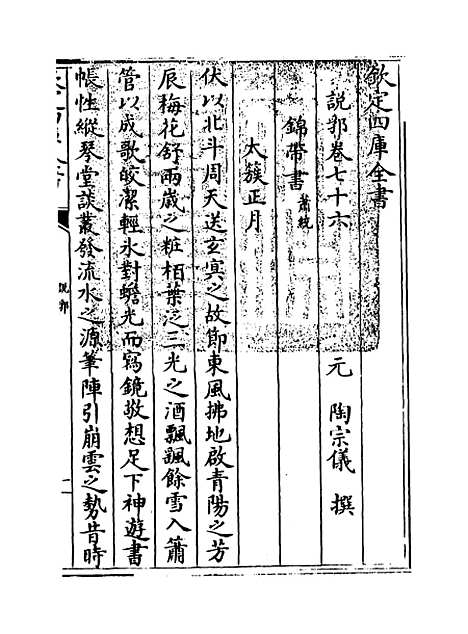 欽定四庫全書
說郛卷七十六
元 陶宗儀 撰
錦帶書 蕭統
太簇正月
伏以北斗周天送玄㝠之故節東風拂地啟青陽之芳
辰梅花舒兩歲之粧栢葉泛三光之酒飄飄餘雪入簫
管以成歌皎潔輕氷對蟾光而寫鏡敬想足下神遊書
帳性縱琴堂談叢發流水之源筆陣引崩雲之勢昔時
說郛